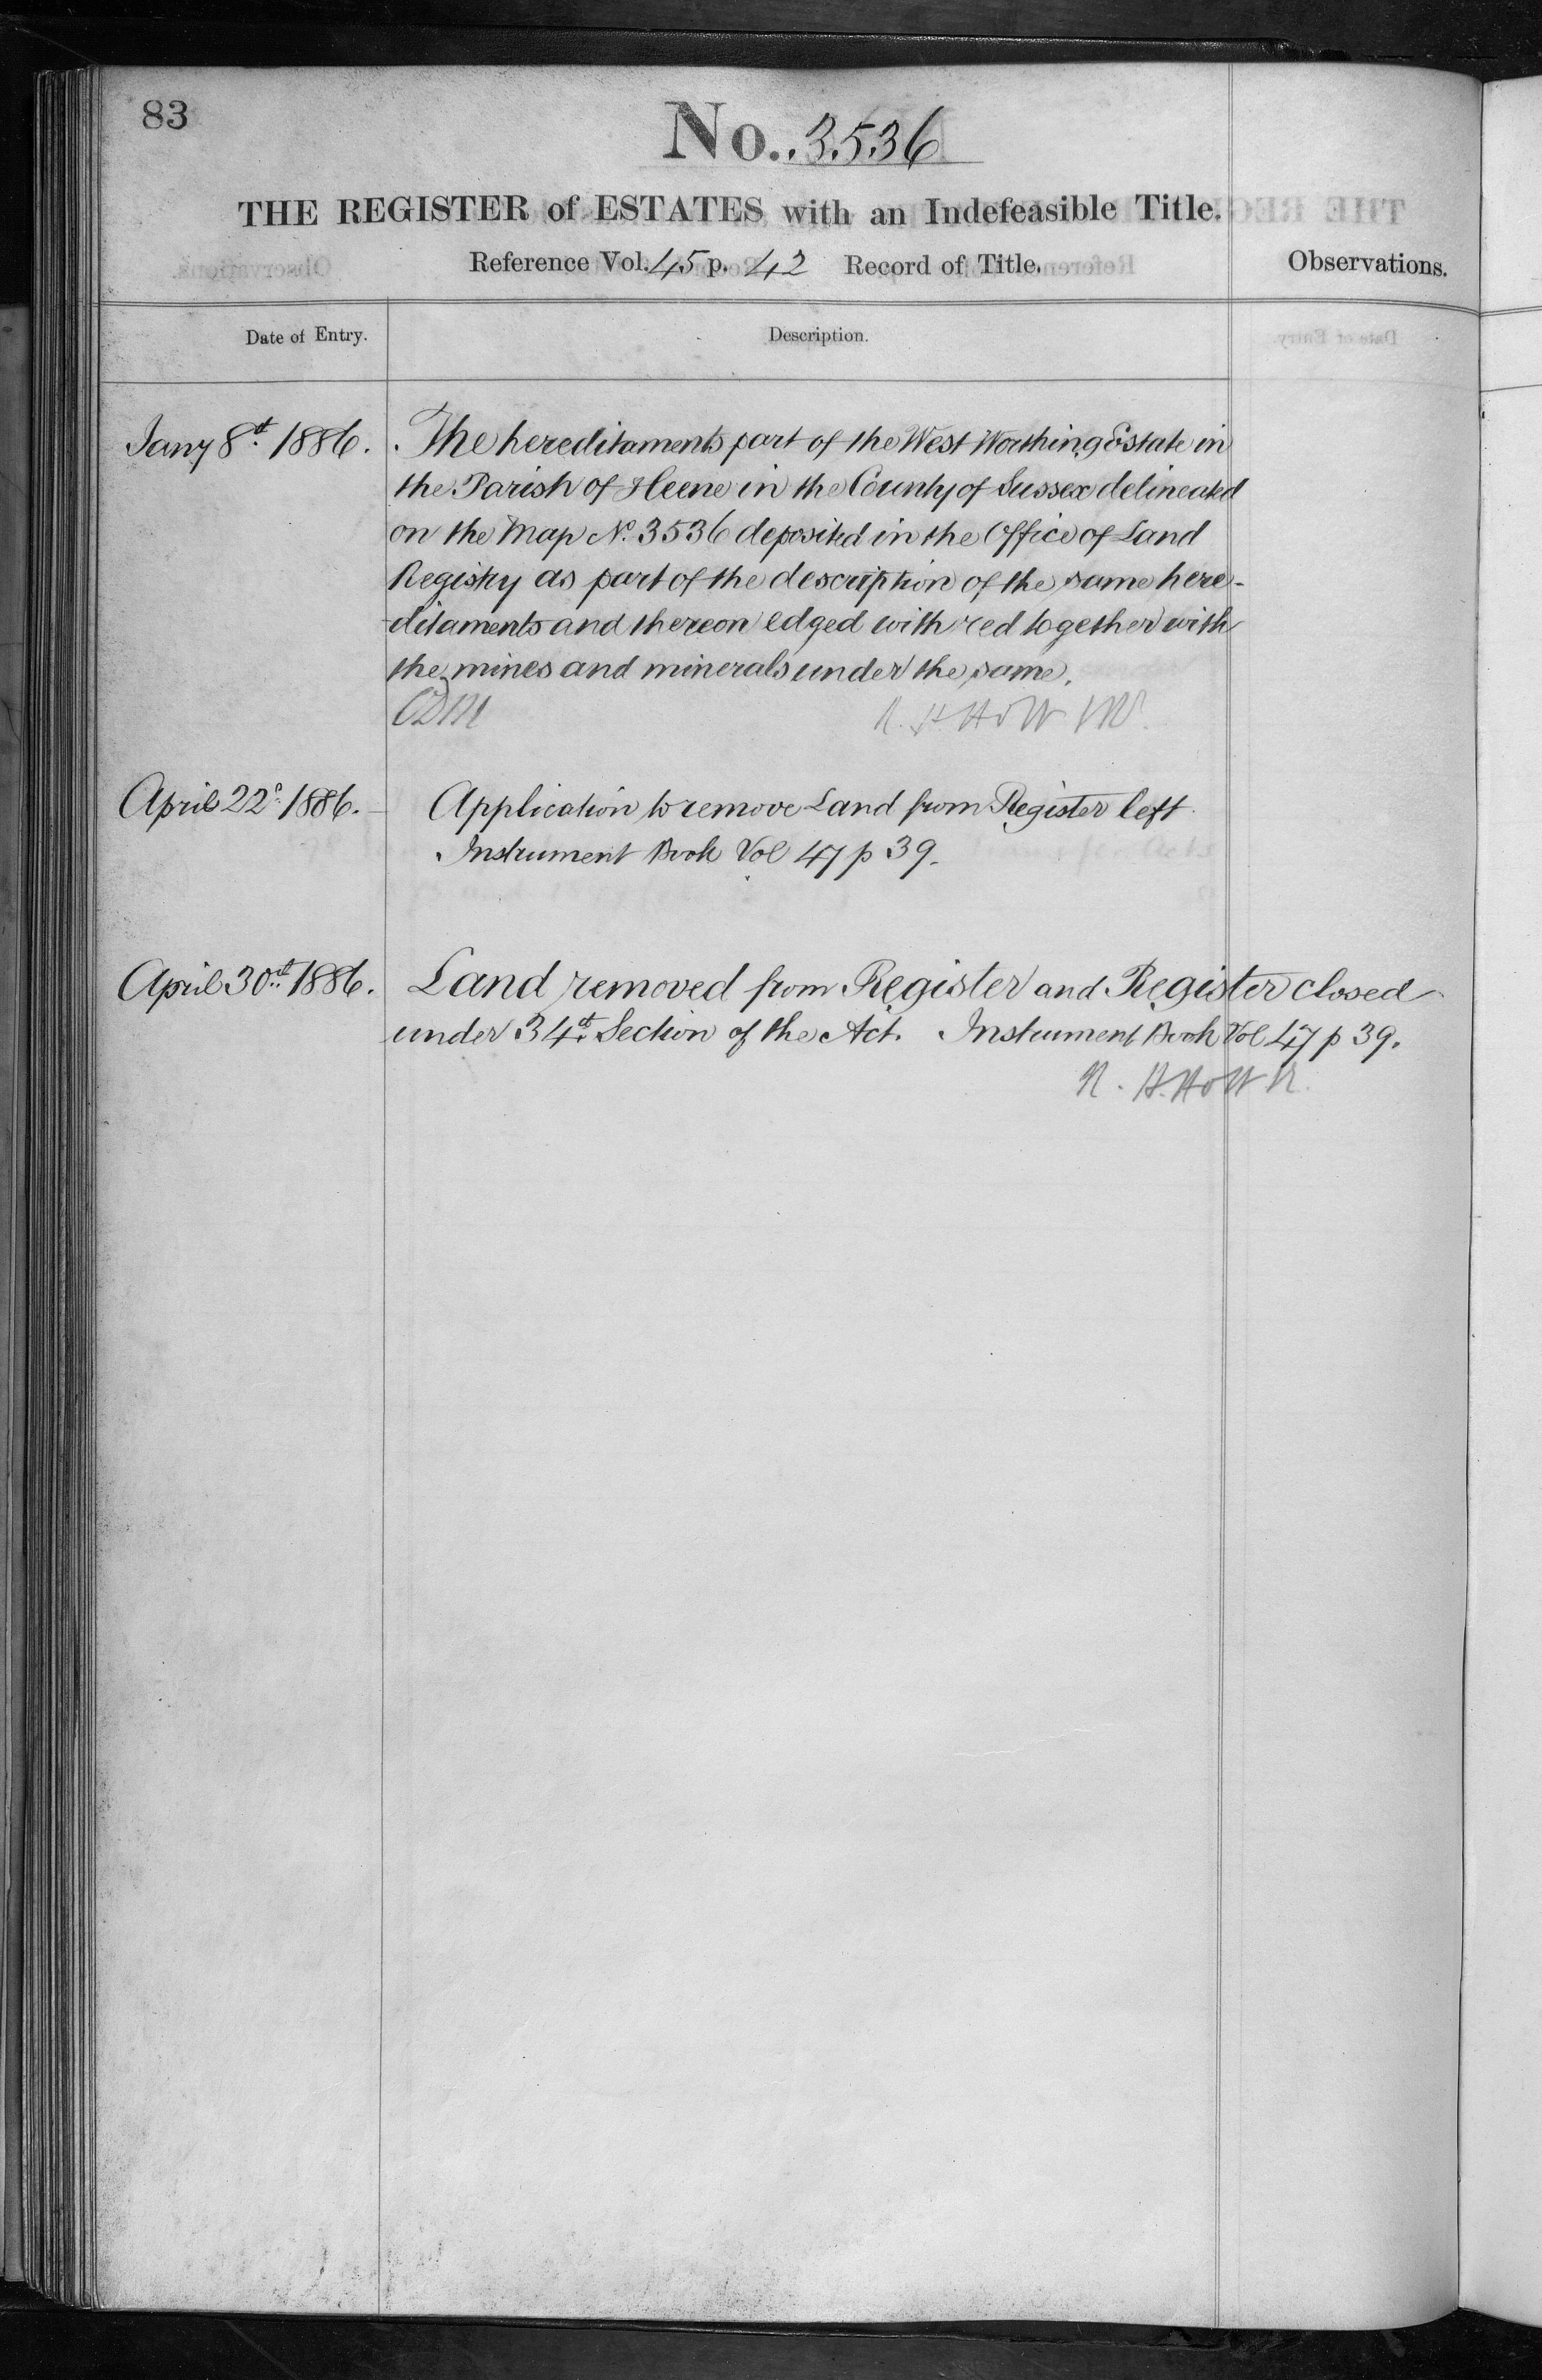 83
No. 3536
THE REGISTER of ESTATES with an Indefeasible Title.
Reference Vol. 45 p. 42 Record of Title.
Observations.
Date of Entry.
Description.
Jany 8th 1886.
The hereditaments part of the West Worthing Estate in
the Parish of Heene in the County of Sussex delineated
on the Map No. 3536 deposited in the Office of Land
Registry as part of the description of the same here-
ditaments and thereon edged with red together with
the mines and minerals under the same.
R. H. Holt
April 22d 1886.
Application to remove Land from Register left
Instrument Book Vol 47 p 39.
April 30th 1886.
Land removed from Register and Register closed
under 34th Section of the Act. Instrument Book Vol 47 p 39.
R. H. Holt R.